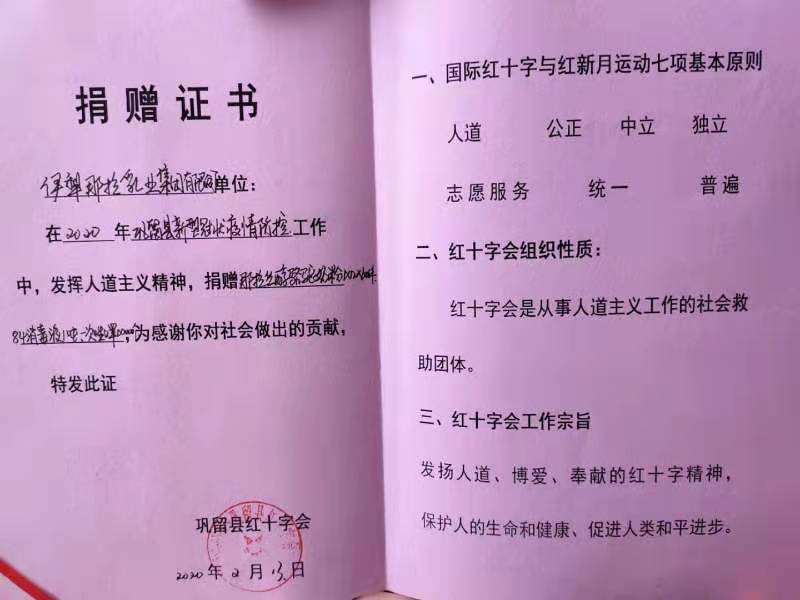 捐赠证书
伊犁那拉乳业集团有限公司单位：
在 2020 年巩留县新型冠状疫情防控工作
中，发挥人道主义精神，捐赠那拉丝醇
84消毒液1吨、为感谢你对社会做出的贡献，
特发此证
巩留县红十字会
2020年2月13日
一、国际红十字与红新月运动七项基本原则
人道 公正 中立 独立
志愿服务 统一 普遍
二、红十字会组织性质：
红十字会是从事人道主义工作的社会救
助团体。
三、红十字会工作宗旨
发扬人道、博爱、奉献的红十字精神，
保护人的生命和健康、促进人类和平进步。